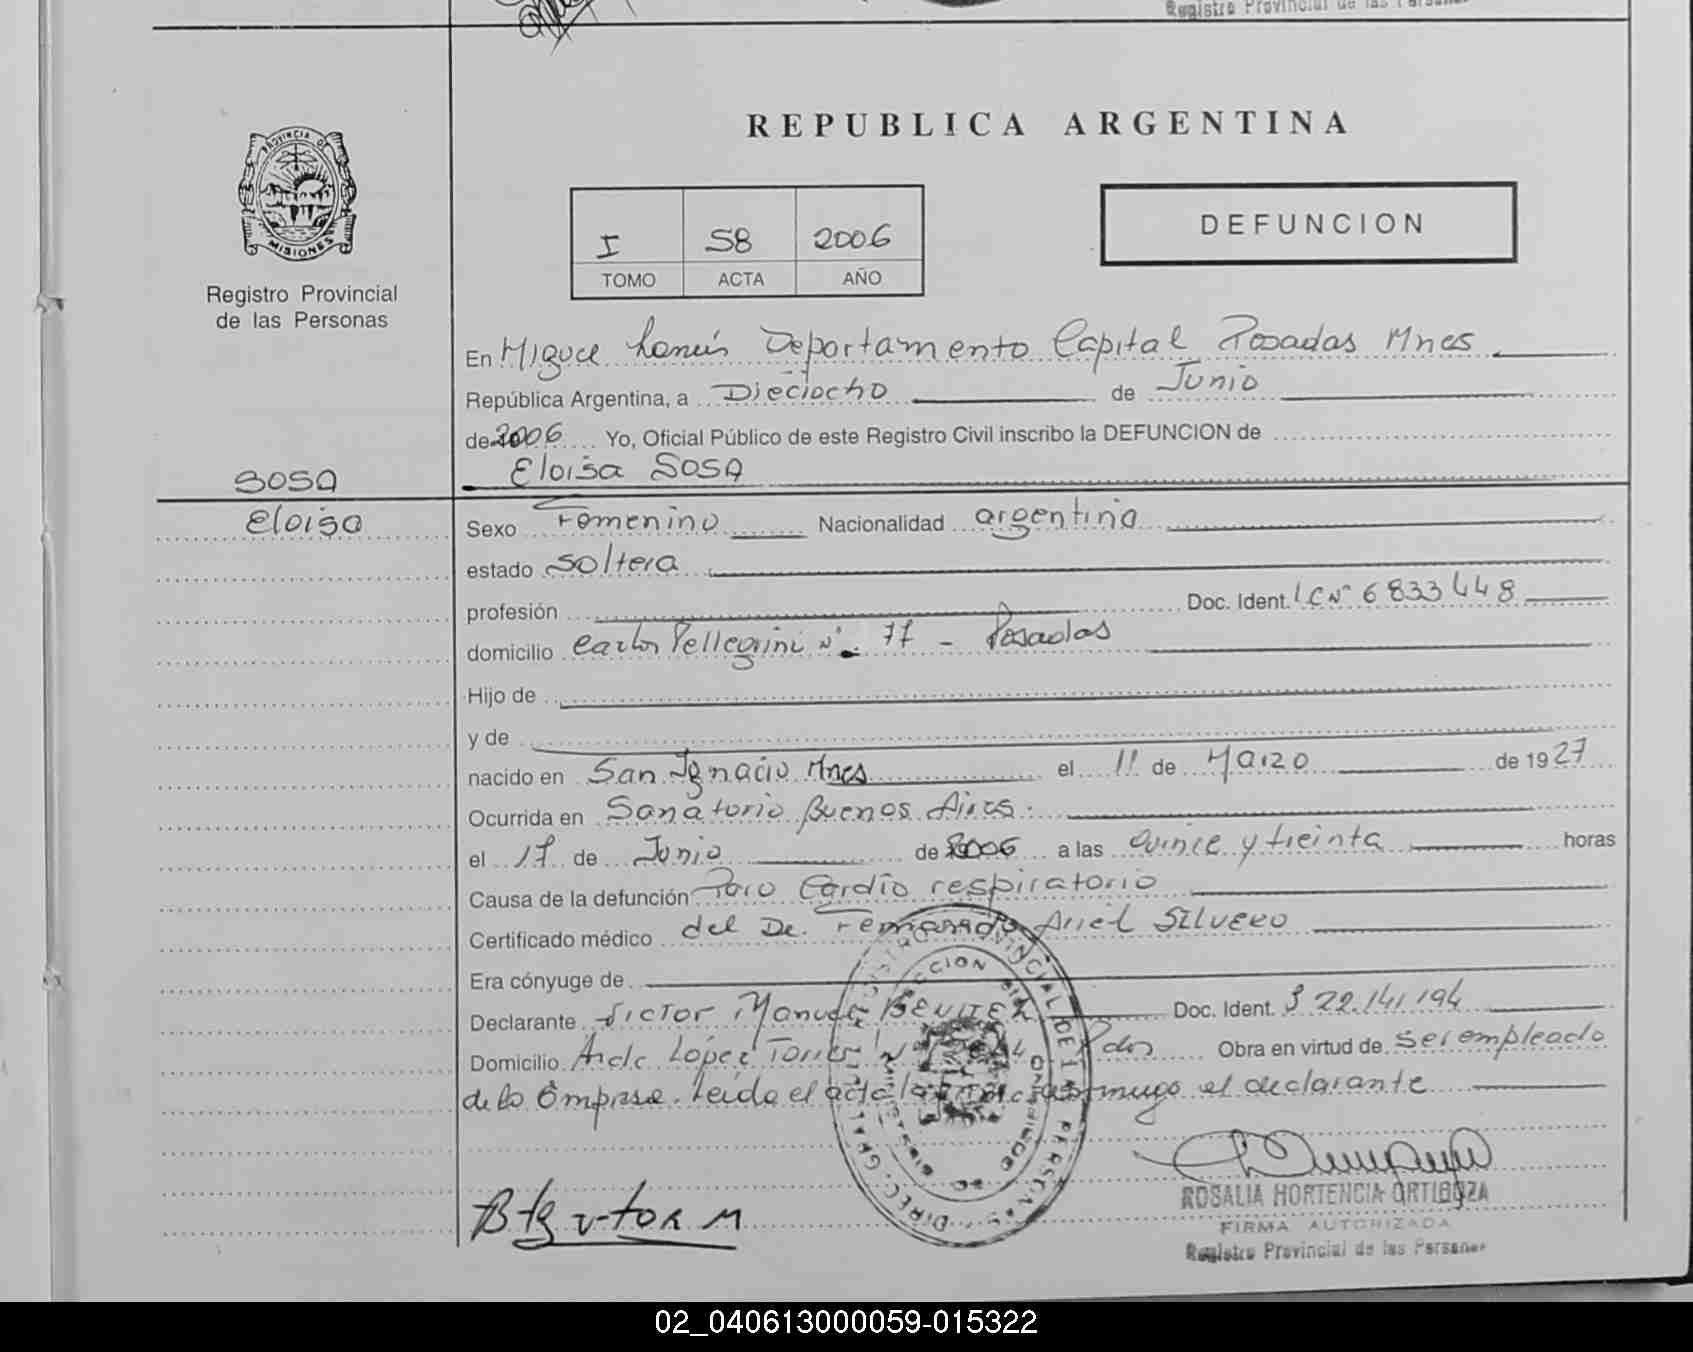 Registro Provincial de las Personas
REPUBLICA ARGENTINA
PROVINCIA DE
MISIONES
Registro Provincial
de las Personas
I 58 2006
TOMO ACTA AÑO
DEFUNCION
En Miguel Lanús Departamento Capital Posadas Mnes
República Argentina, a Dieciocho de Junio
de 2006 Yo, Oficial Público de este Registro Civil inscribo la DEFUNCION de
SOSA
Eloisa SOSA
Eloisa
Sexo Femenino Nacionalidad argentina
estado Soltera
profesión Doc. Ident. LC Nº 6833448
domicilio Carlos Pellegrini Nº 77 - Posadas
Hijo de
y de
nacido en San Ignacio Mnes el 11 de Marzo de 1927
Ocurrida en Sanatorio Buenos Aires.
el 17 de Junio de 2006 a las Quince y treinta horas
Causa de la defunción Paro Cardio respiratorio
Certificado médico del Dr. Fernando Ariel SILVERO
Era cónyuge de
Declarante Victor Manuel BENITEZ Doc. Ident. 22.141.194
Domicilio Avda. López Torres Nº Pdas Obra en virtud de ser empleado
de la Empresa. Leída el acta la conmigo el declarante
ROSALIA HORTENCIA ORTIGOZA
FIRMA AUTORIZADA
Registro Provincial de las Personas
02_040613000059-015322